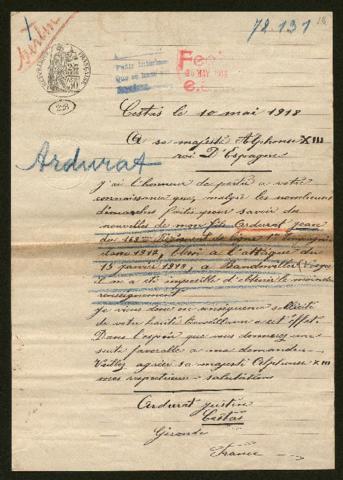 72.131
Cestas le 10 mai 1918
A sa majesté Alphonse XIII
roi D'Espagne
Ardurat
j'ai l'honneur de porter a votre
connaissance que, malgré les nombreuses
démarches faites pour savoir des
nouvelles de mon fils Ardurat jean
du
classe 1917, a l'attaque du
15 janvier 1918, a
il m'a été impossible d'obtenir le moindre
renseignement
je viens donc en conséquence solliciter
de votre haute bienveillance a cet effet
Dans l'espoir que vous donnerez une
suite favorable a ma demande
Veillez agréer sa majesté Alphonse XIII
mes respectueuses salutations
Ardurat justin
Cestas
Gironde
France